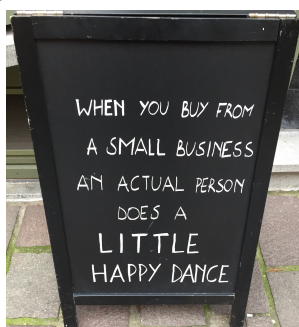 WHEN YOU BUY FROM
A SMALL BUSINESS
AN ACTUAL PERSON
DOES A
LITTLE
HAPPY DANCE